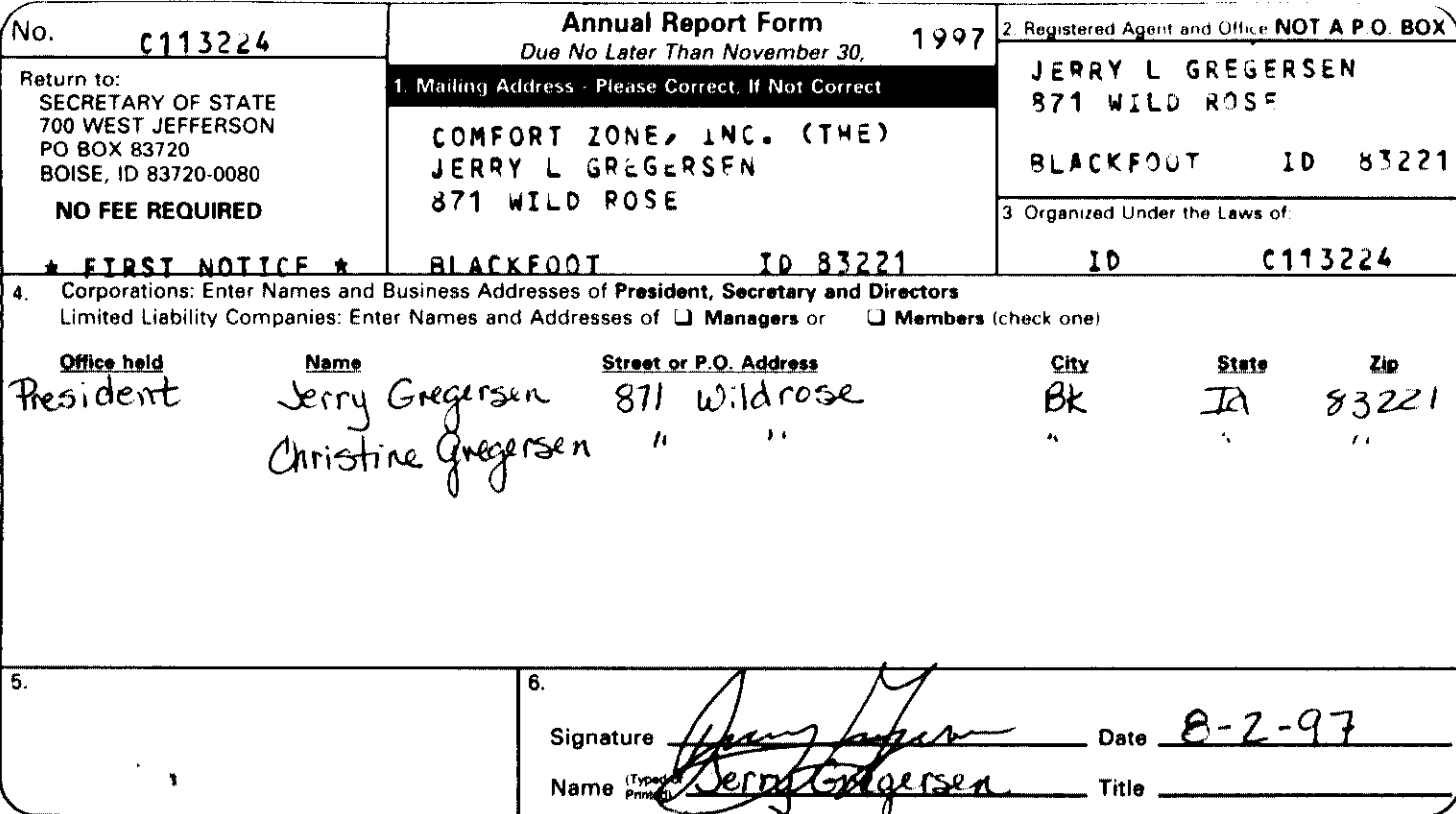 No. C113224
Return to:
SECRETARY OF STATE
700 WEST JEFFERSON
PO BOX 83720
BOISE, ID 83720-0080
NO FEE REQUIRED
* FIRST NOTICE *
Annual Report Form 1997
Due No Later Than November 30,
1. Mailing Address - Please Correct, If Not Correct
COMFORT ZONE, INC. (THE)
JERRY L GREGERSEN
871 WILD ROSE
BLACKFOOT ID 83221
2. Registered Agent and Office NOT A P.O. BOX
JERRY L GREGERSEN
871 WILD ROSE
BLACKFOOT ID 83221
3 Organized Under the Laws of:
ID C113224
4. Corporations: Enter Names and Business Addresses of President, Secretary and Directors
Limited Liability Companies: Enter Names and Addresses of ❑ Managers or ❑ Members (check one)
Office held Name Street or P.O. Address City State Zip
President Jerry Gregersen 871 Wildrose Bk Id 83221
Christine Gregersen " " " " "
5.
6.
Signature Jerry Gregersen Date 8-2-97
Name (Typed or Printed) Jerry Gregersen Title